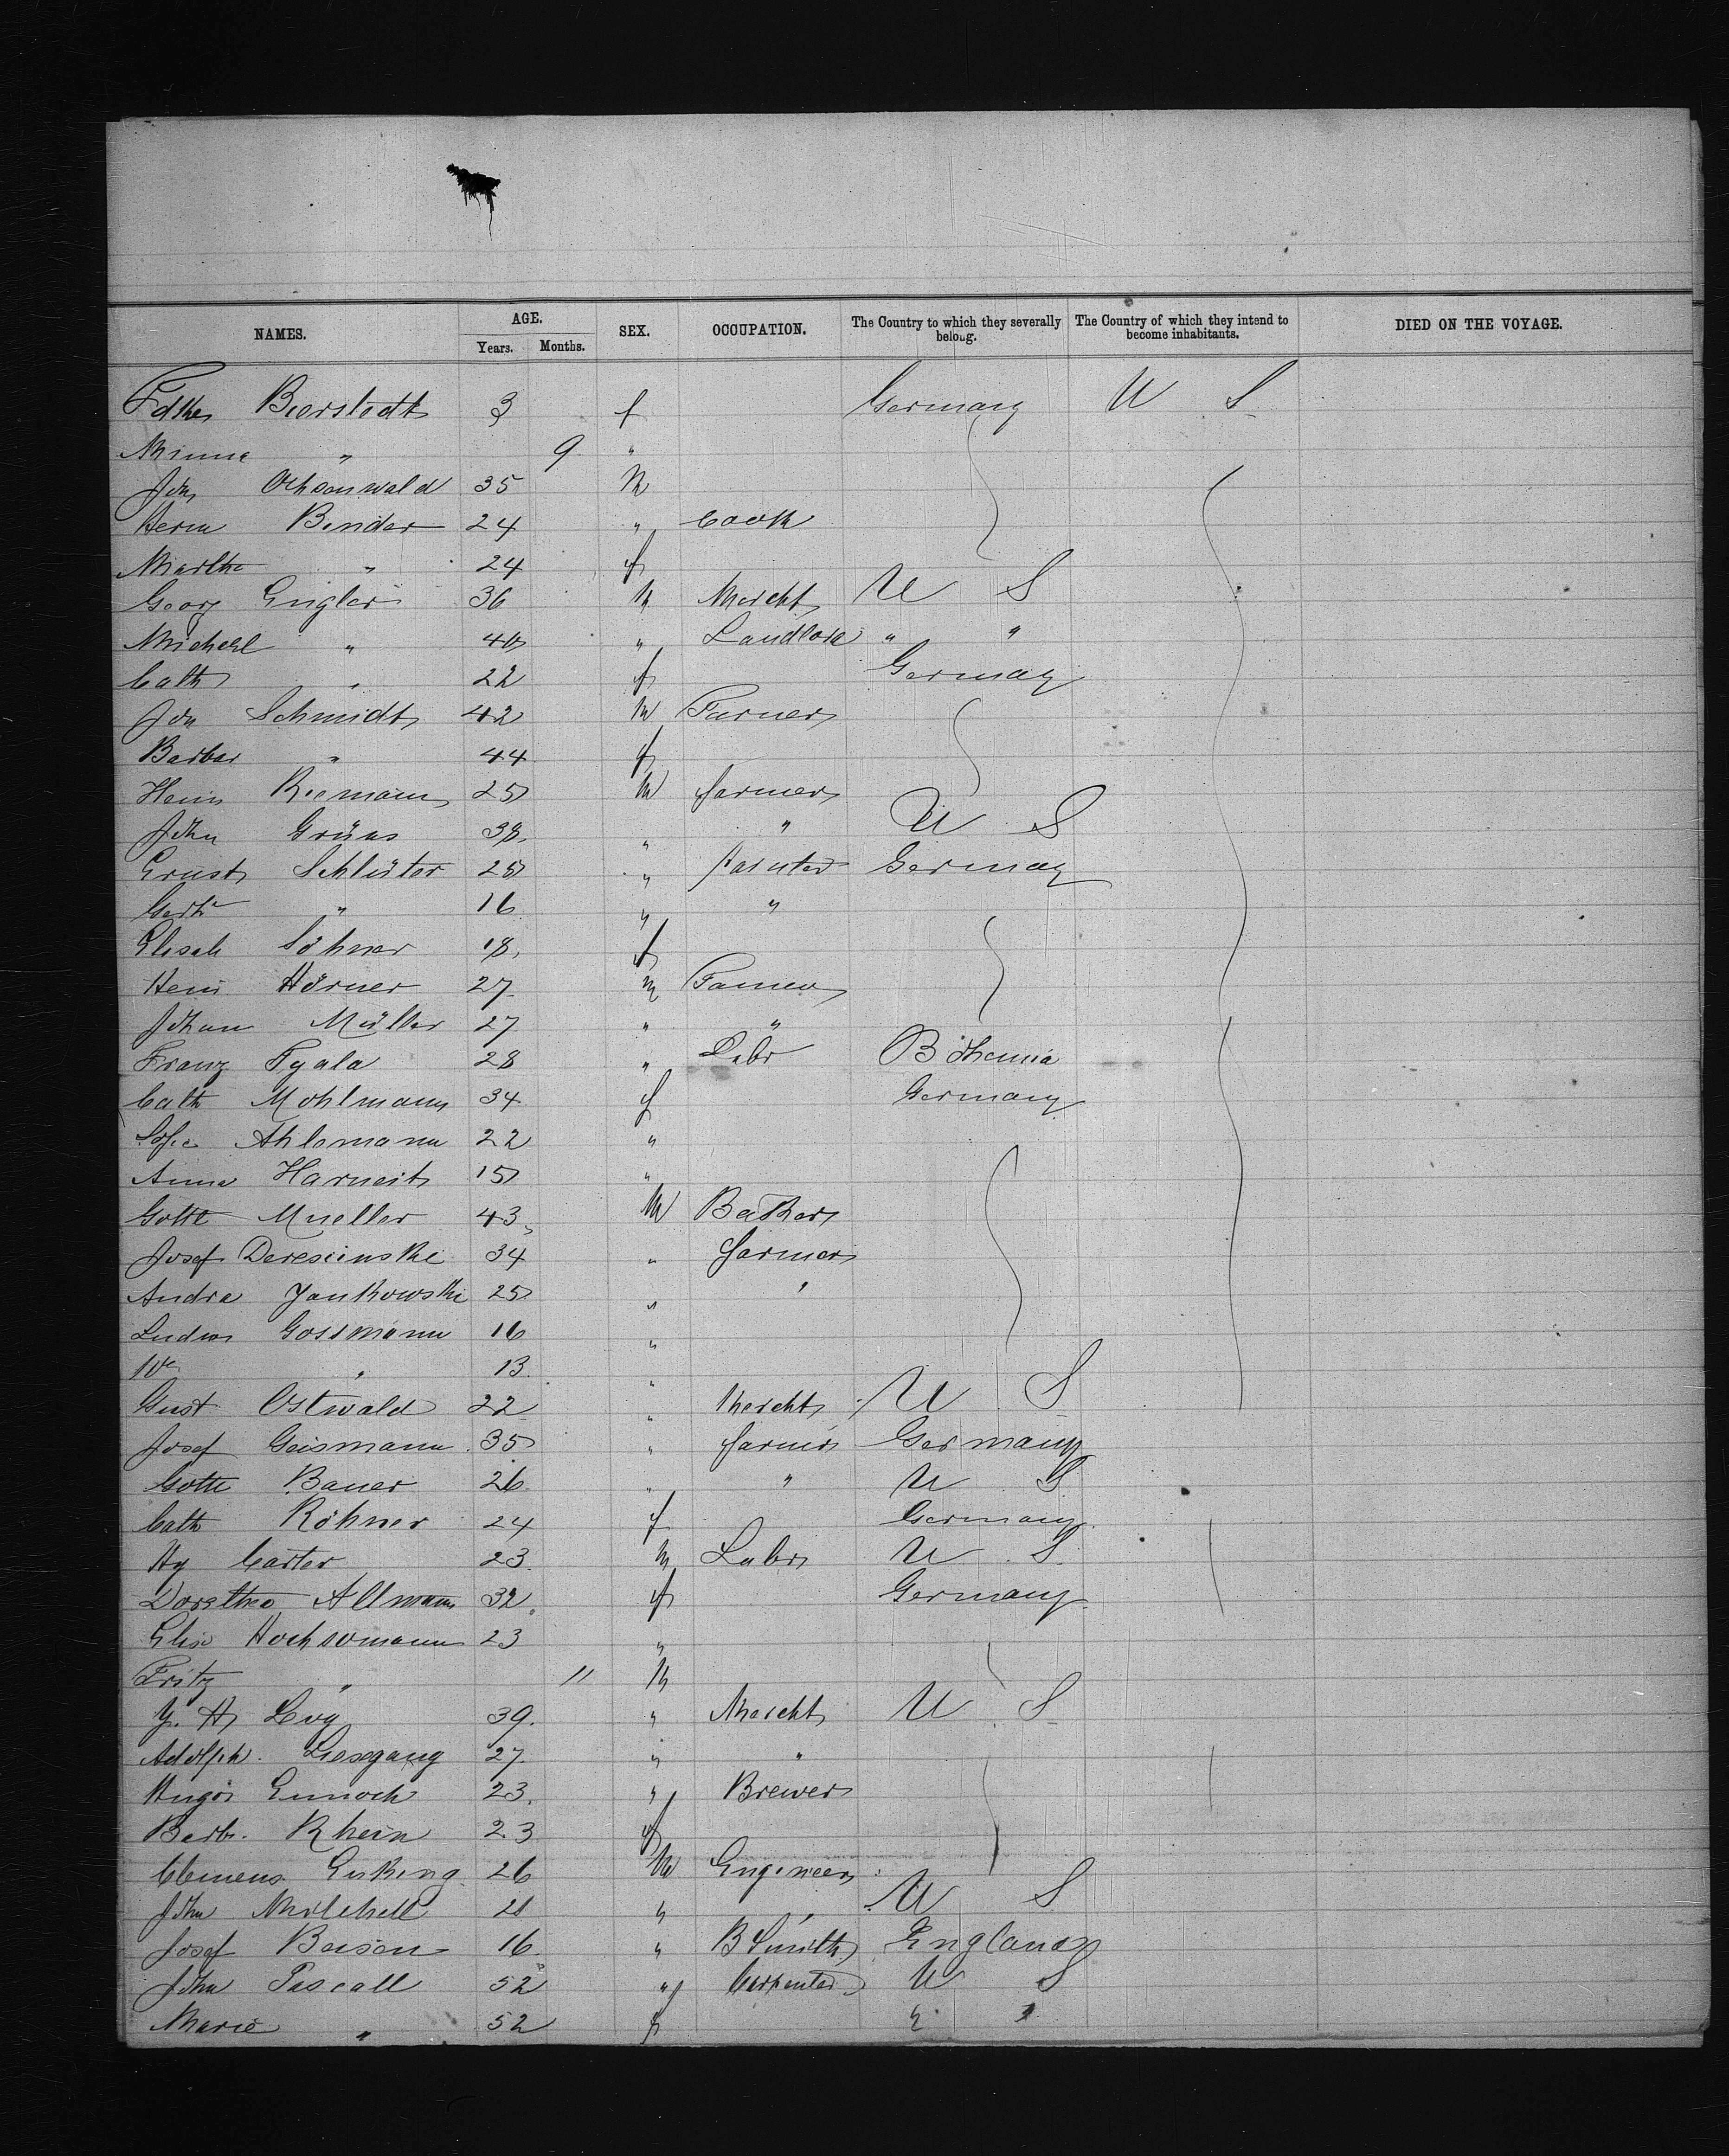 NAMES. AGE. SEX. OCCUPATION. The Country to which they severally belong. The Country of which they intend to become inhabitants. DIED ON THE VOYAGE.
Years. Months.
Bierstedt 3 f Germany U S
Minna " 9 "
Joh Ochsenwald 35 M
Herm Binder 24 " Cook
Martha " 24 f
Georg Engler 36 M Mercht U S
Michael " 40 " Landlord " "
Cath " 22 f Germany
Joh Schmidt 42 M Farmer
Barbar " 44 f
Heinr Riemann 25 M farmer
John Grüns 38 " " U S
Ernst Schlüter 25 " painter Germany
Gerh " 16 " "
Elisab Söhner 18 f
Heinr Hörner 27 M Farmer
Johann Müller 27 " "
Franz Fyala 28 " Labr Bohemia
Cath Mohlmann 34 f Germany
Sofie Ahlemann 22 "
Anna Harneit 15 "
Gottl Mueller 43 M Baker
Josef Deresinski 34 " farmer
Andre Jankowski 25 " "
Ludw Gossmann 16 "
We " 13 "
Gust Ostwald 22 " Mercht U S
Josef Geismann 35 " farmer Germany
Gottl Bauer 26 " " U S
Cath Röhner 24 f Germany
Hy Carter 23 M Labr U S
Dorothea Allmann 32 f Germany
Elise 23 "
Fritz " 11 M
Y. H Levy 39 " Mercht U S
Adolph Liesegang 27 " "
Hugo Ennoch 23 " Brewer
Barb. Rhein 23 f
Clemens Enking 26 M Engineer
John Mitchell 21 " " U S
Josef 16 " B Smith England
John Pascall 52 " Carpenter U S
Marie " 52 f " "